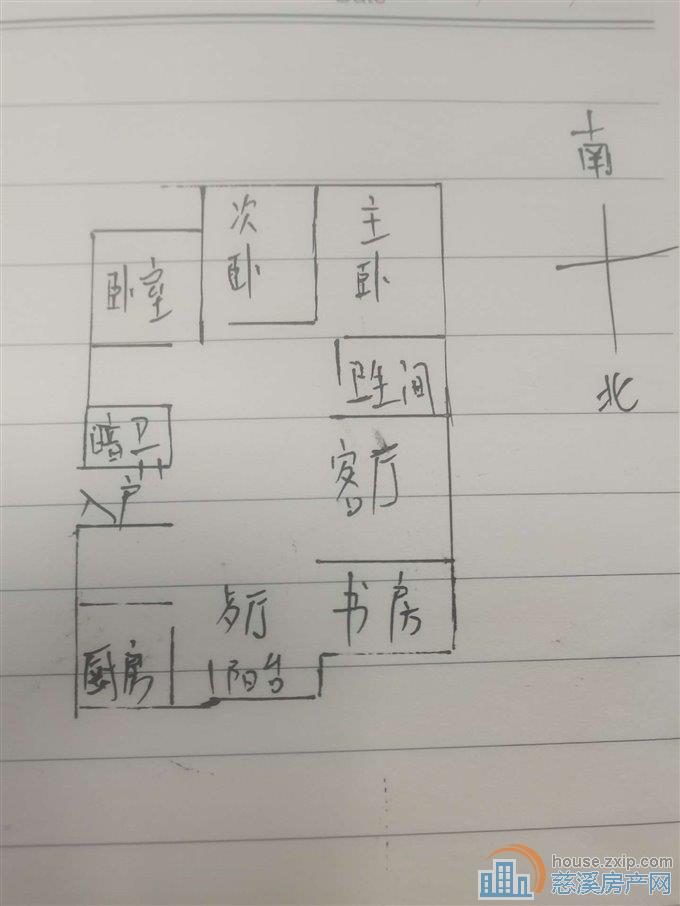 Date
南
次卧
主卧
卧室
卫生间
北
暗卫
客厅
入户
餐厅
书房
厨房
阳台
house.zxip.com
慈溪房产网